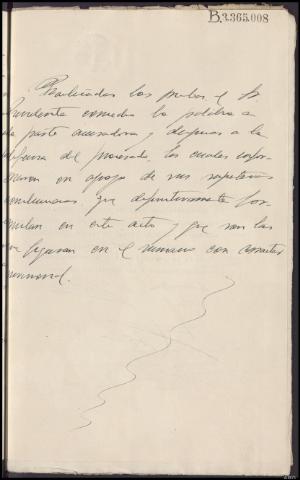 B.3.365.008
Realizadas las pruebas el Sr.
Presidente concede la palabra a
la parte acusadora y despues a la
defensa del procesado, los cuales
en apoyo de sus respectivas
que definitivamente for-
mulan en este acto y que son las
que figuran en el sumario con caracter